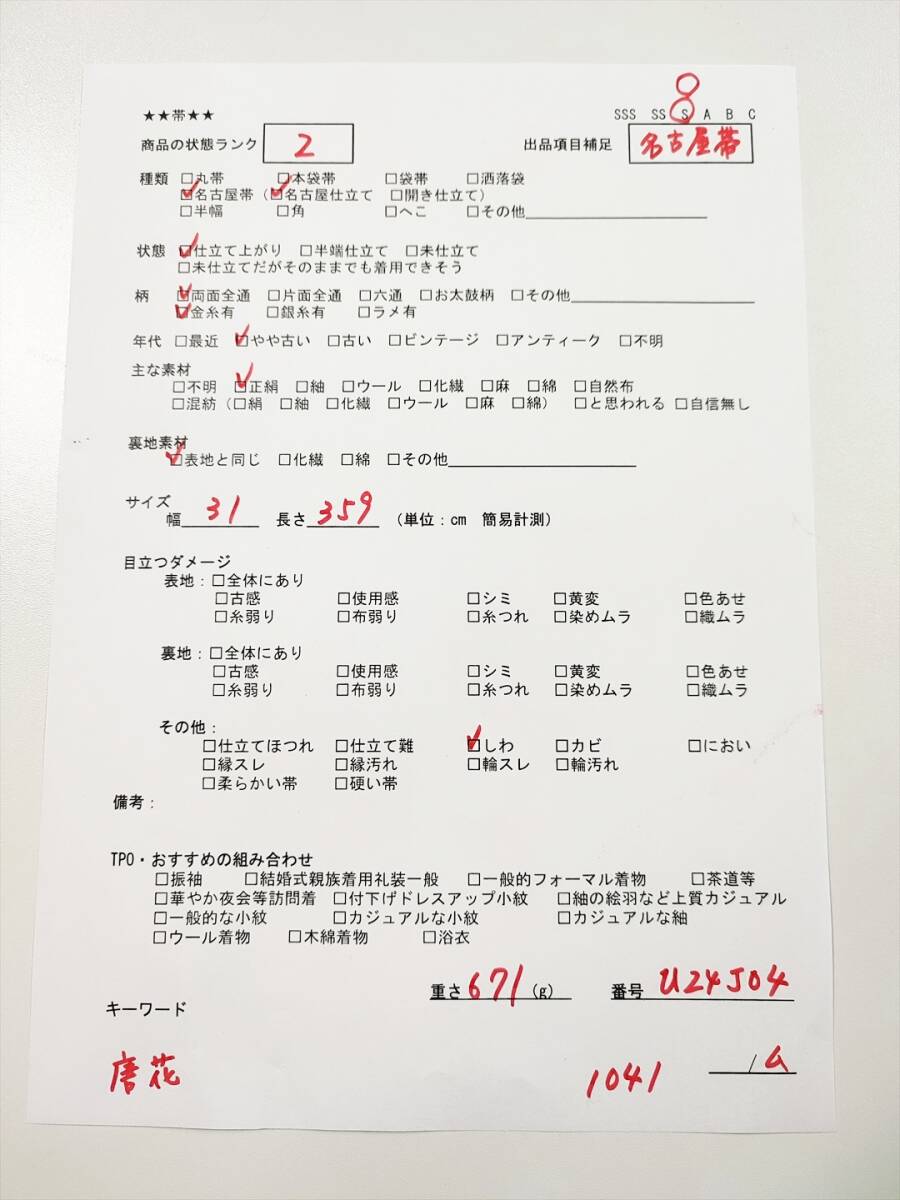 ★★帯★★
SSS SS S A B C
商品の状態ランク 2 出品項目補足 名古屋帯
種類 □丸帯 □本袋帯 □袋帯 □洒落袋
☑名古屋帯（☑名古屋仕立て □開き仕立て）
□半幅 □角 □へこ □その他
状態 ☑仕立て上がり □半端仕立て □未仕立て
□未仕立てだがそのままでも着用できそう
柄 ☑両面全通 □片面全通 □六通 □お太鼓柄 □その他
☑金糸有 □銀糸有 □ラメ有
年代 □最近 ☑やや古い □古い □ビンテージ □アンティーク □不明
主な素材
□不明 ☑正絹 □紬 □ウール □化繊 □麻 □綿 □自然布
□混紡（□絹 □紬 □化繊 □ウール □麻 □綿） □と思われる □自信無し
裏地素材
☑表地と同じ □化繊 □綿 □その他
サイズ
幅 31 長さ 359 （単位：cm 簡易計測）
目立つダメージ
表地：□全体にあり
□古感 □使用感 □シミ □黄変 □色あせ
□糸弱り □布弱り □糸つれ □染めムラ □織ムラ
裏地：□全体にあり
□古感 □使用感 □シミ □黄変 □色あせ
□糸弱り □布弱り □糸つれ □染めムラ □織ムラ
その他：
□仕立てほつれ □仕立て難 ☑しわ □カビ □におい
□縁スレ □縁汚れ □輪スレ □輪汚れ
□柔らかい帯 □硬い帯
備考：
TPO・おすすめの組み合わせ
□振袖 □結婚式親族着用礼装一般 □一般的フォーマル着物 □茶道等
□華やか夜会等訪問着 □付下げドレスアップ小紋 □紬の絵羽など上質カジュアル
□一般的な小紋 □カジュアルな小紋 □カジュアルな紬
□ウール着物 □木綿着物 □浴衣
重さ 671 (g) 番号 U24J04
キーワード
唐花 1041 /ム